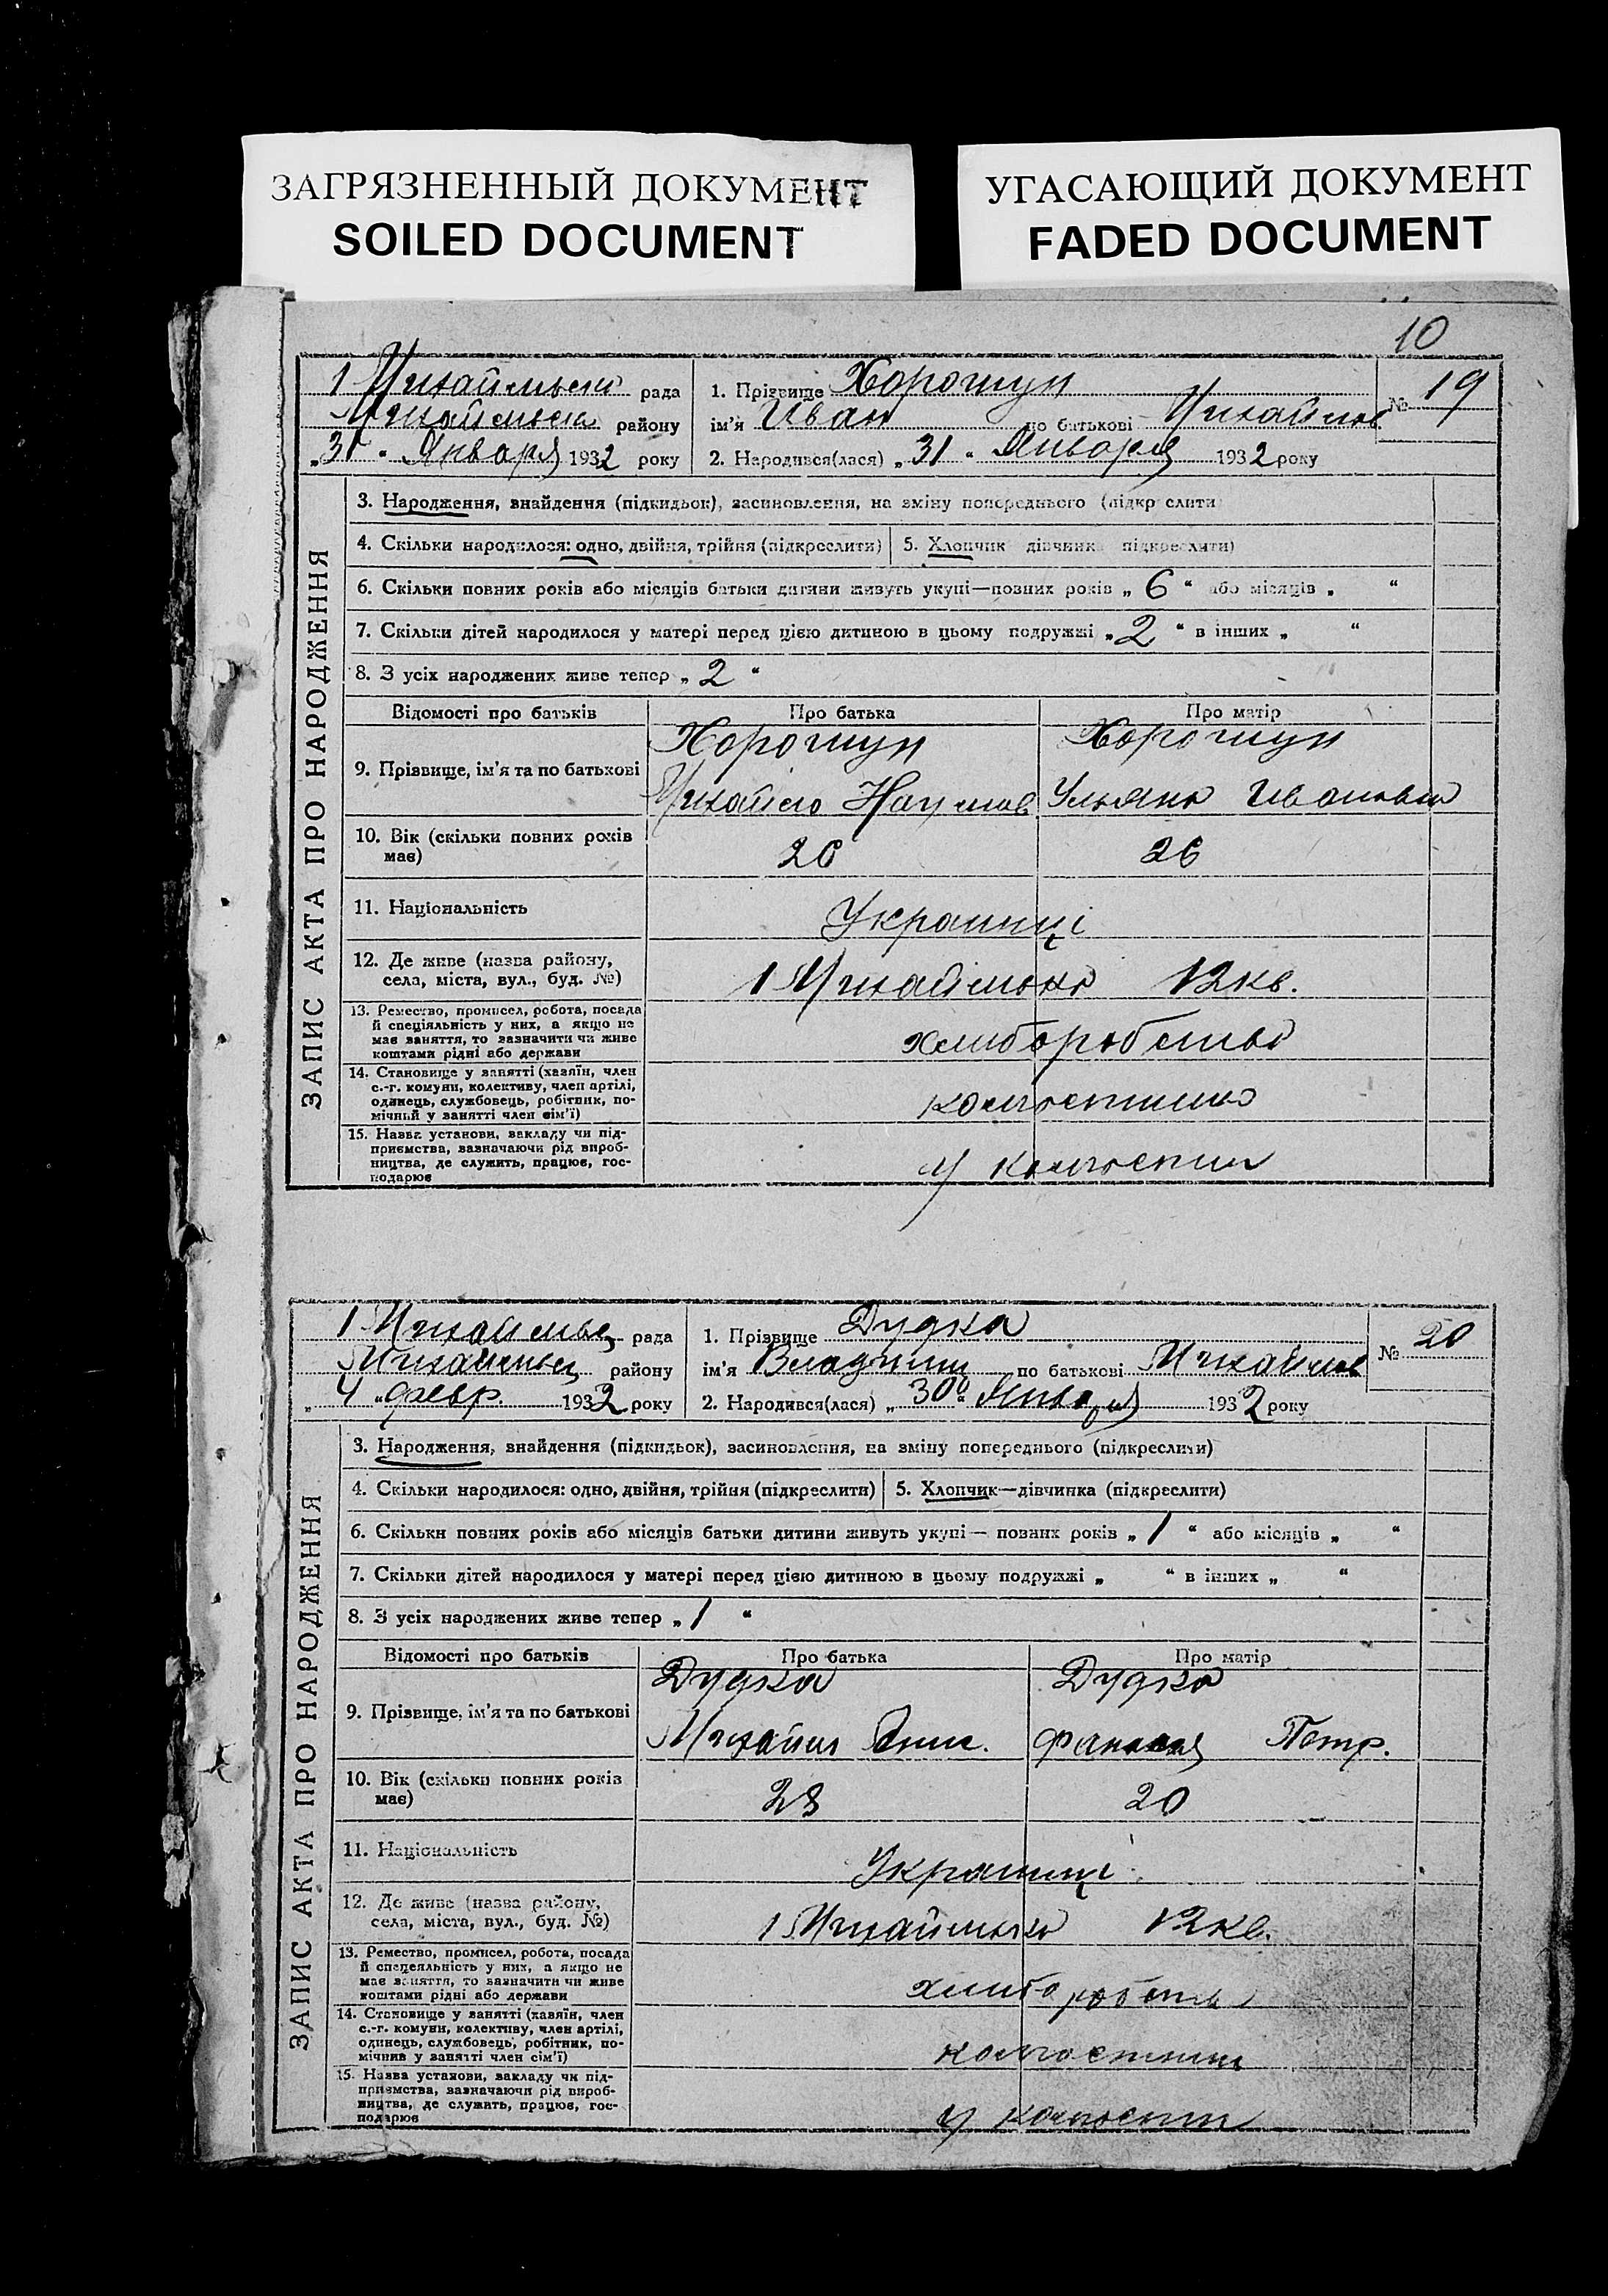 ЗАГРЯЗНЕННЫЙ ДОКУМЕНТ
SOILED DOCUMENT
УГАСАЮЩИЙ ДОКУМЕНТ
FADED DOCUMENT
10
ЗАПИС АКТА ПРО НАРОДЖЕННЯ
1 рада
району
„31“ Января 1932 року
1. Прізвище Хорошун
ім'я Иван по батькові Михайлов
№ 19
2. Народився(лася) „31“ Января 1932 року
3. Народження, знайдення (підкидьок), засиновлення, на зміну попереднього (підкреслити
4. Скільки народилося: одно, двійня, трійня (підкреслити)
5. Хлопчик дівчинка підкреслити)
6. Скільки повних років або місяців батьки дитини живуть укупі—повних років „6“ або місяців „ “
7. Скільки дітей народилося у матері перед цією дитиною в цьому подружжі „2“ в інших „ “
8. З усіх народжених живе тепер „2“
Відомості про батьків Про батька Про матір
9. Прізвище, ім'я та по батькові
Хорошун Хорошун
Михайло Наумов Ульяна
10. Вік (скільки повних років
має)
26 26
11. Національність
Украинці
12. Де живе (назва району,
села, міста, вул., буд. №)
1 12кв.
13. Ремество, промисел, робота, посада
й спеціяльність у них, а якщо не
має заняття, то зазначити чи живе
коштами рідні або держави
14. Становище у занятті (хазяїн, член
с.-г. комуни, колективу, член артілі,
одинець, службовець, робітник, по-
мічный у занятті член сім'ї)
15. Назва установи, закладу чи під-
приємства, зазначаючи рід вироб-
ництва, де служить, працює, гос-
подарює
у
ЗАПИС АКТА ПРО НАРОДЖЕННЯ
1 рада
району
„4“ февр. 1932 року
1. Прізвище Дудка
ім'я Владимир по батькові Михайлов
№ 20
2. Народився(лася) „30“ Января 1932 року
3. Народження, знайдення (підкидьок), засиновлення, на зміну попереднього (підкреслити)
4. Скільки народилося: одно, двійня, трійня (підкреслити)
5. Хлопчик—дівчинка (підкреслити)
6. Скільки повних років або місяців батьки дитини живуть укупі— повних років „1“ або місяців „ “
7. Скільки дітей народилося у матері перед цією дитиною в цьому подружжі „ “ в інших „ “
8. З усіх народжених живе тепер „1“
Відомості про батьків Про батька Про матір
9. Прізвище, ім'я та по батькові
Дудка Дудка
Михайил Петр.
10. Вік (скільки повних років
має)
23 20
11. Національність
Украинці
12. Де живе (назва району,
села, міста, вул., буд. №)
1 12кв.
13. Ремество, промисел, робота, посада
й спецеяльність у них, а якщо не
має заняття, то зазначити чи живе
коштами рідні або держави
14. Становище у занятті (хавяїн, член
с.-г. комуни, колективу, член артілі,
одинець, службовець, робітник, по-
мічнив у занятті член сім'ї)
15. Назва установи, закладу чи під-
приємства, зазначаючи рід вироб-
ництва, де служить, працює, гос-
подарює
у